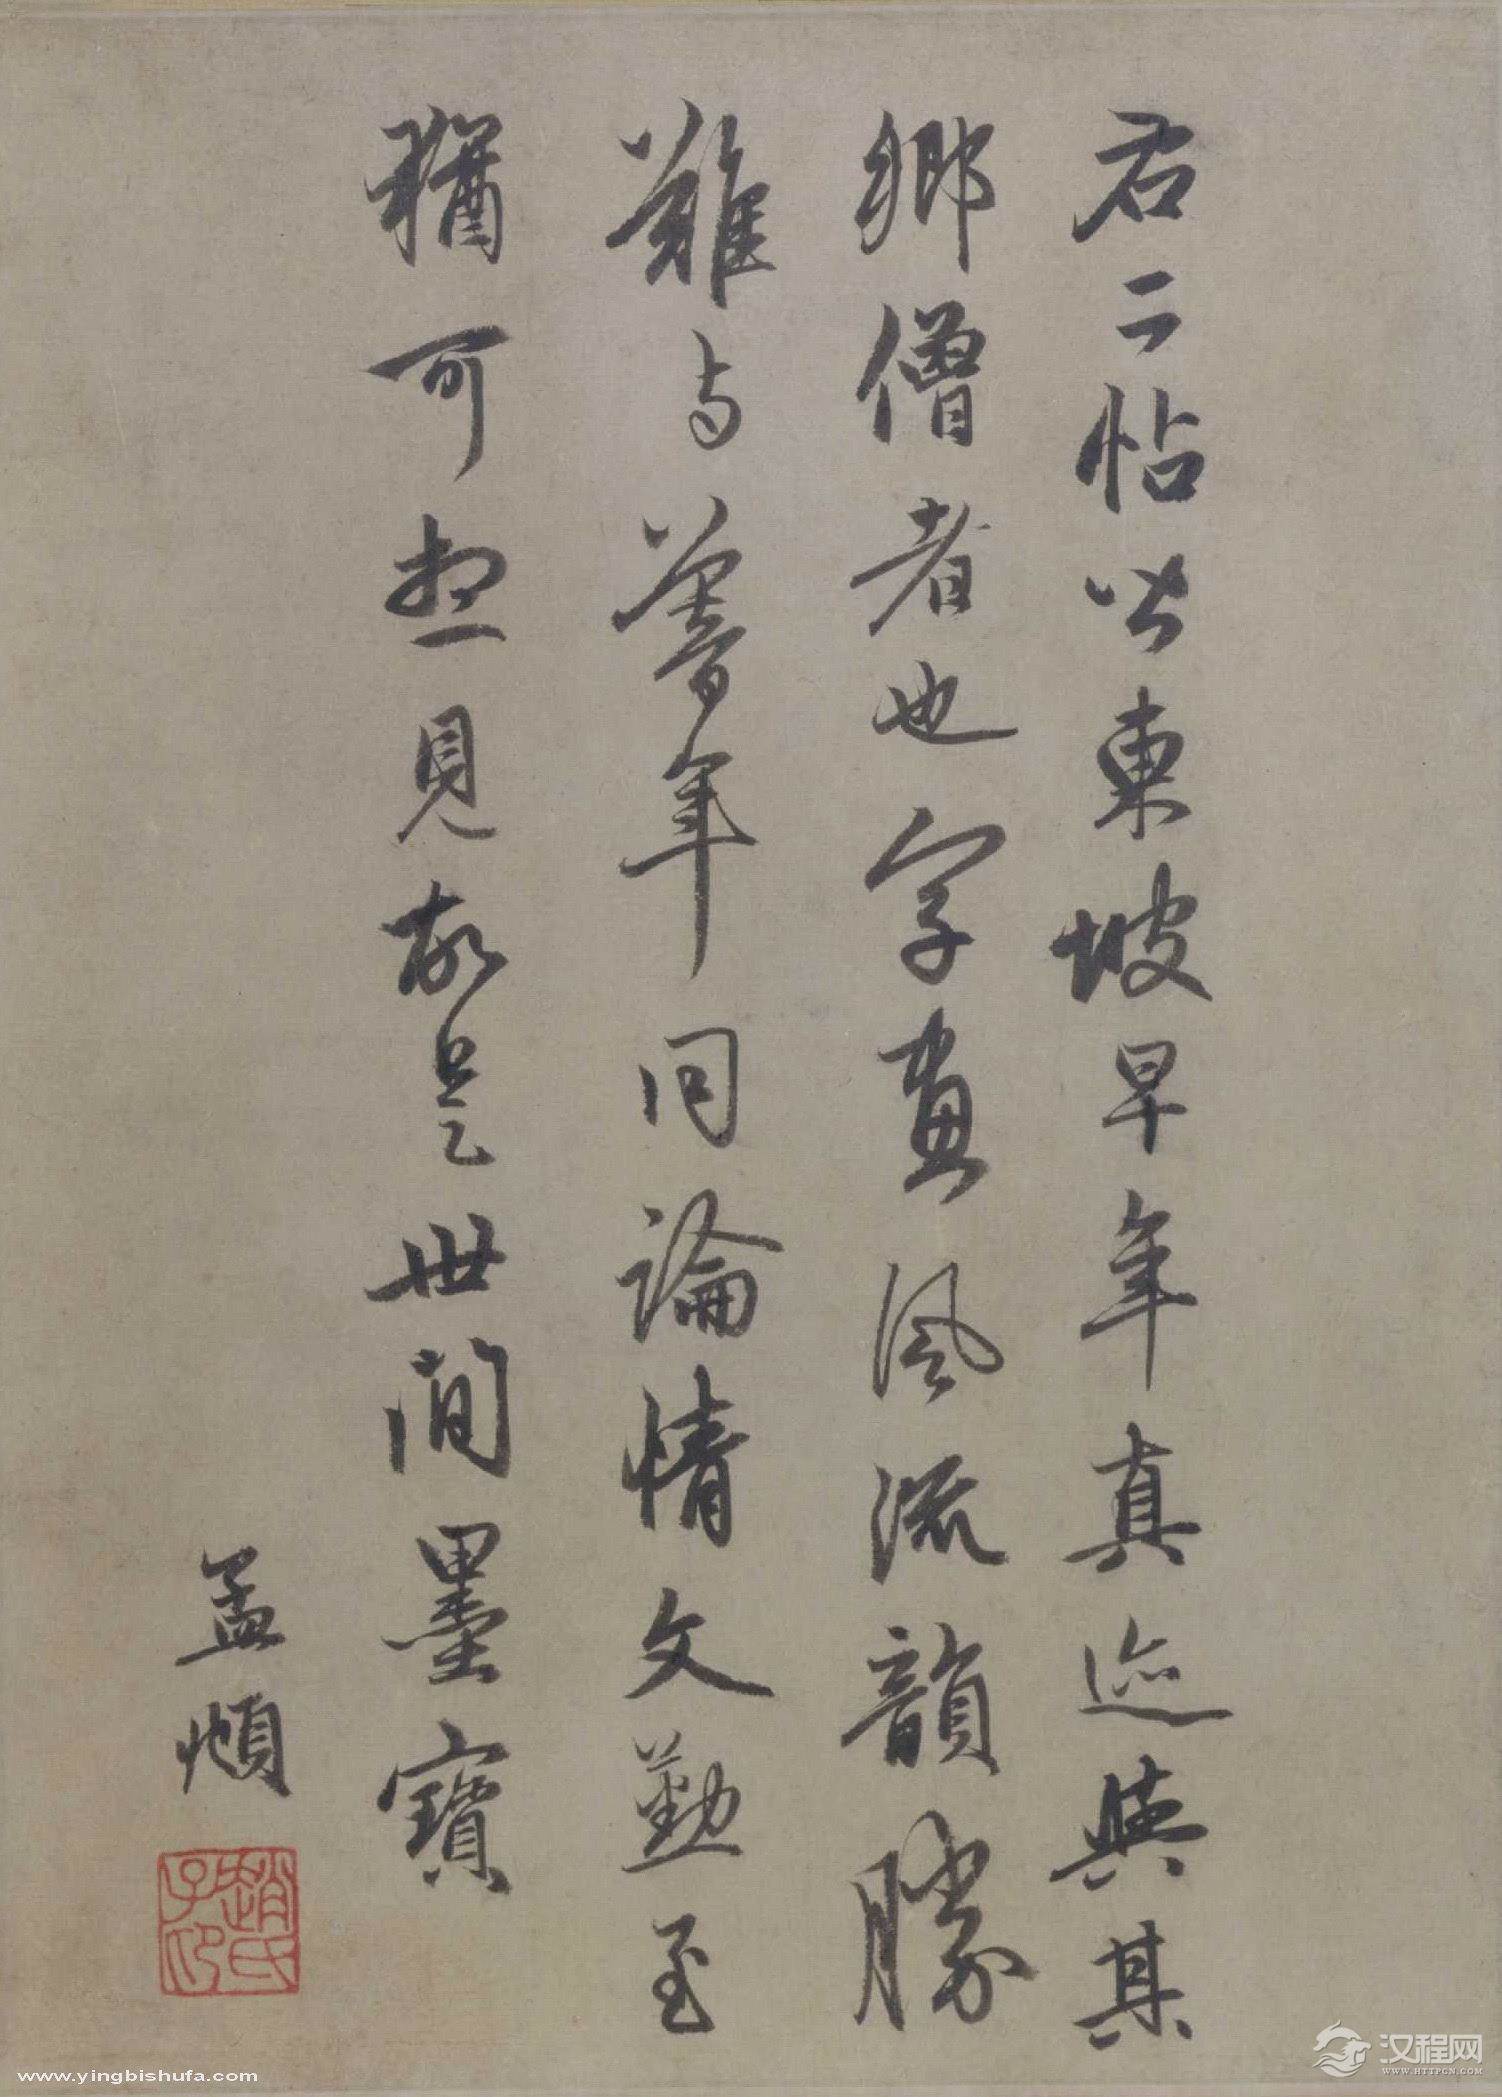 右二帖皆東坡早年真迹與其
鄉僧者也字畫風流韻勝
難與暮年同論情文勤至
猶可想見故是世間墨寶
孟頫
趙氏子印
www.yingbishufa.com
汉程网
WWW.HTTPCN.COM